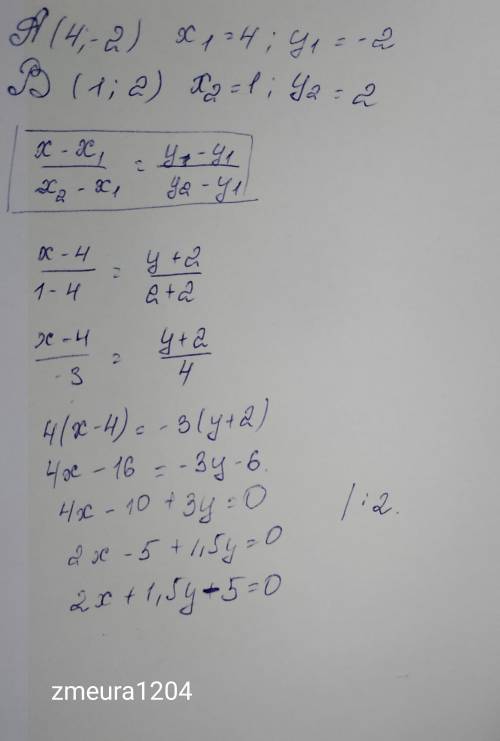 A (4; -2) x₁ = 4; y₁ = -2
B (1; 2) x₂ = 1; y₂ = 2
(x - x₁)/(x₂ - x₁) = (y₁ - y₁)/(y₂ - y₁)
(x - 4)/(1 - 4) = (y + 2)/(2 + 2)
(x - 4)/(-3) = (y + 2)/4
4(x - 4) = -3(y + 2)
4x - 16 = -3y - 6.
4x - 10 + 3y = 0 / : 2.
2x - 5 + 1,5y = 0
2x + 1,5y - 5 = 0
zmeura1204